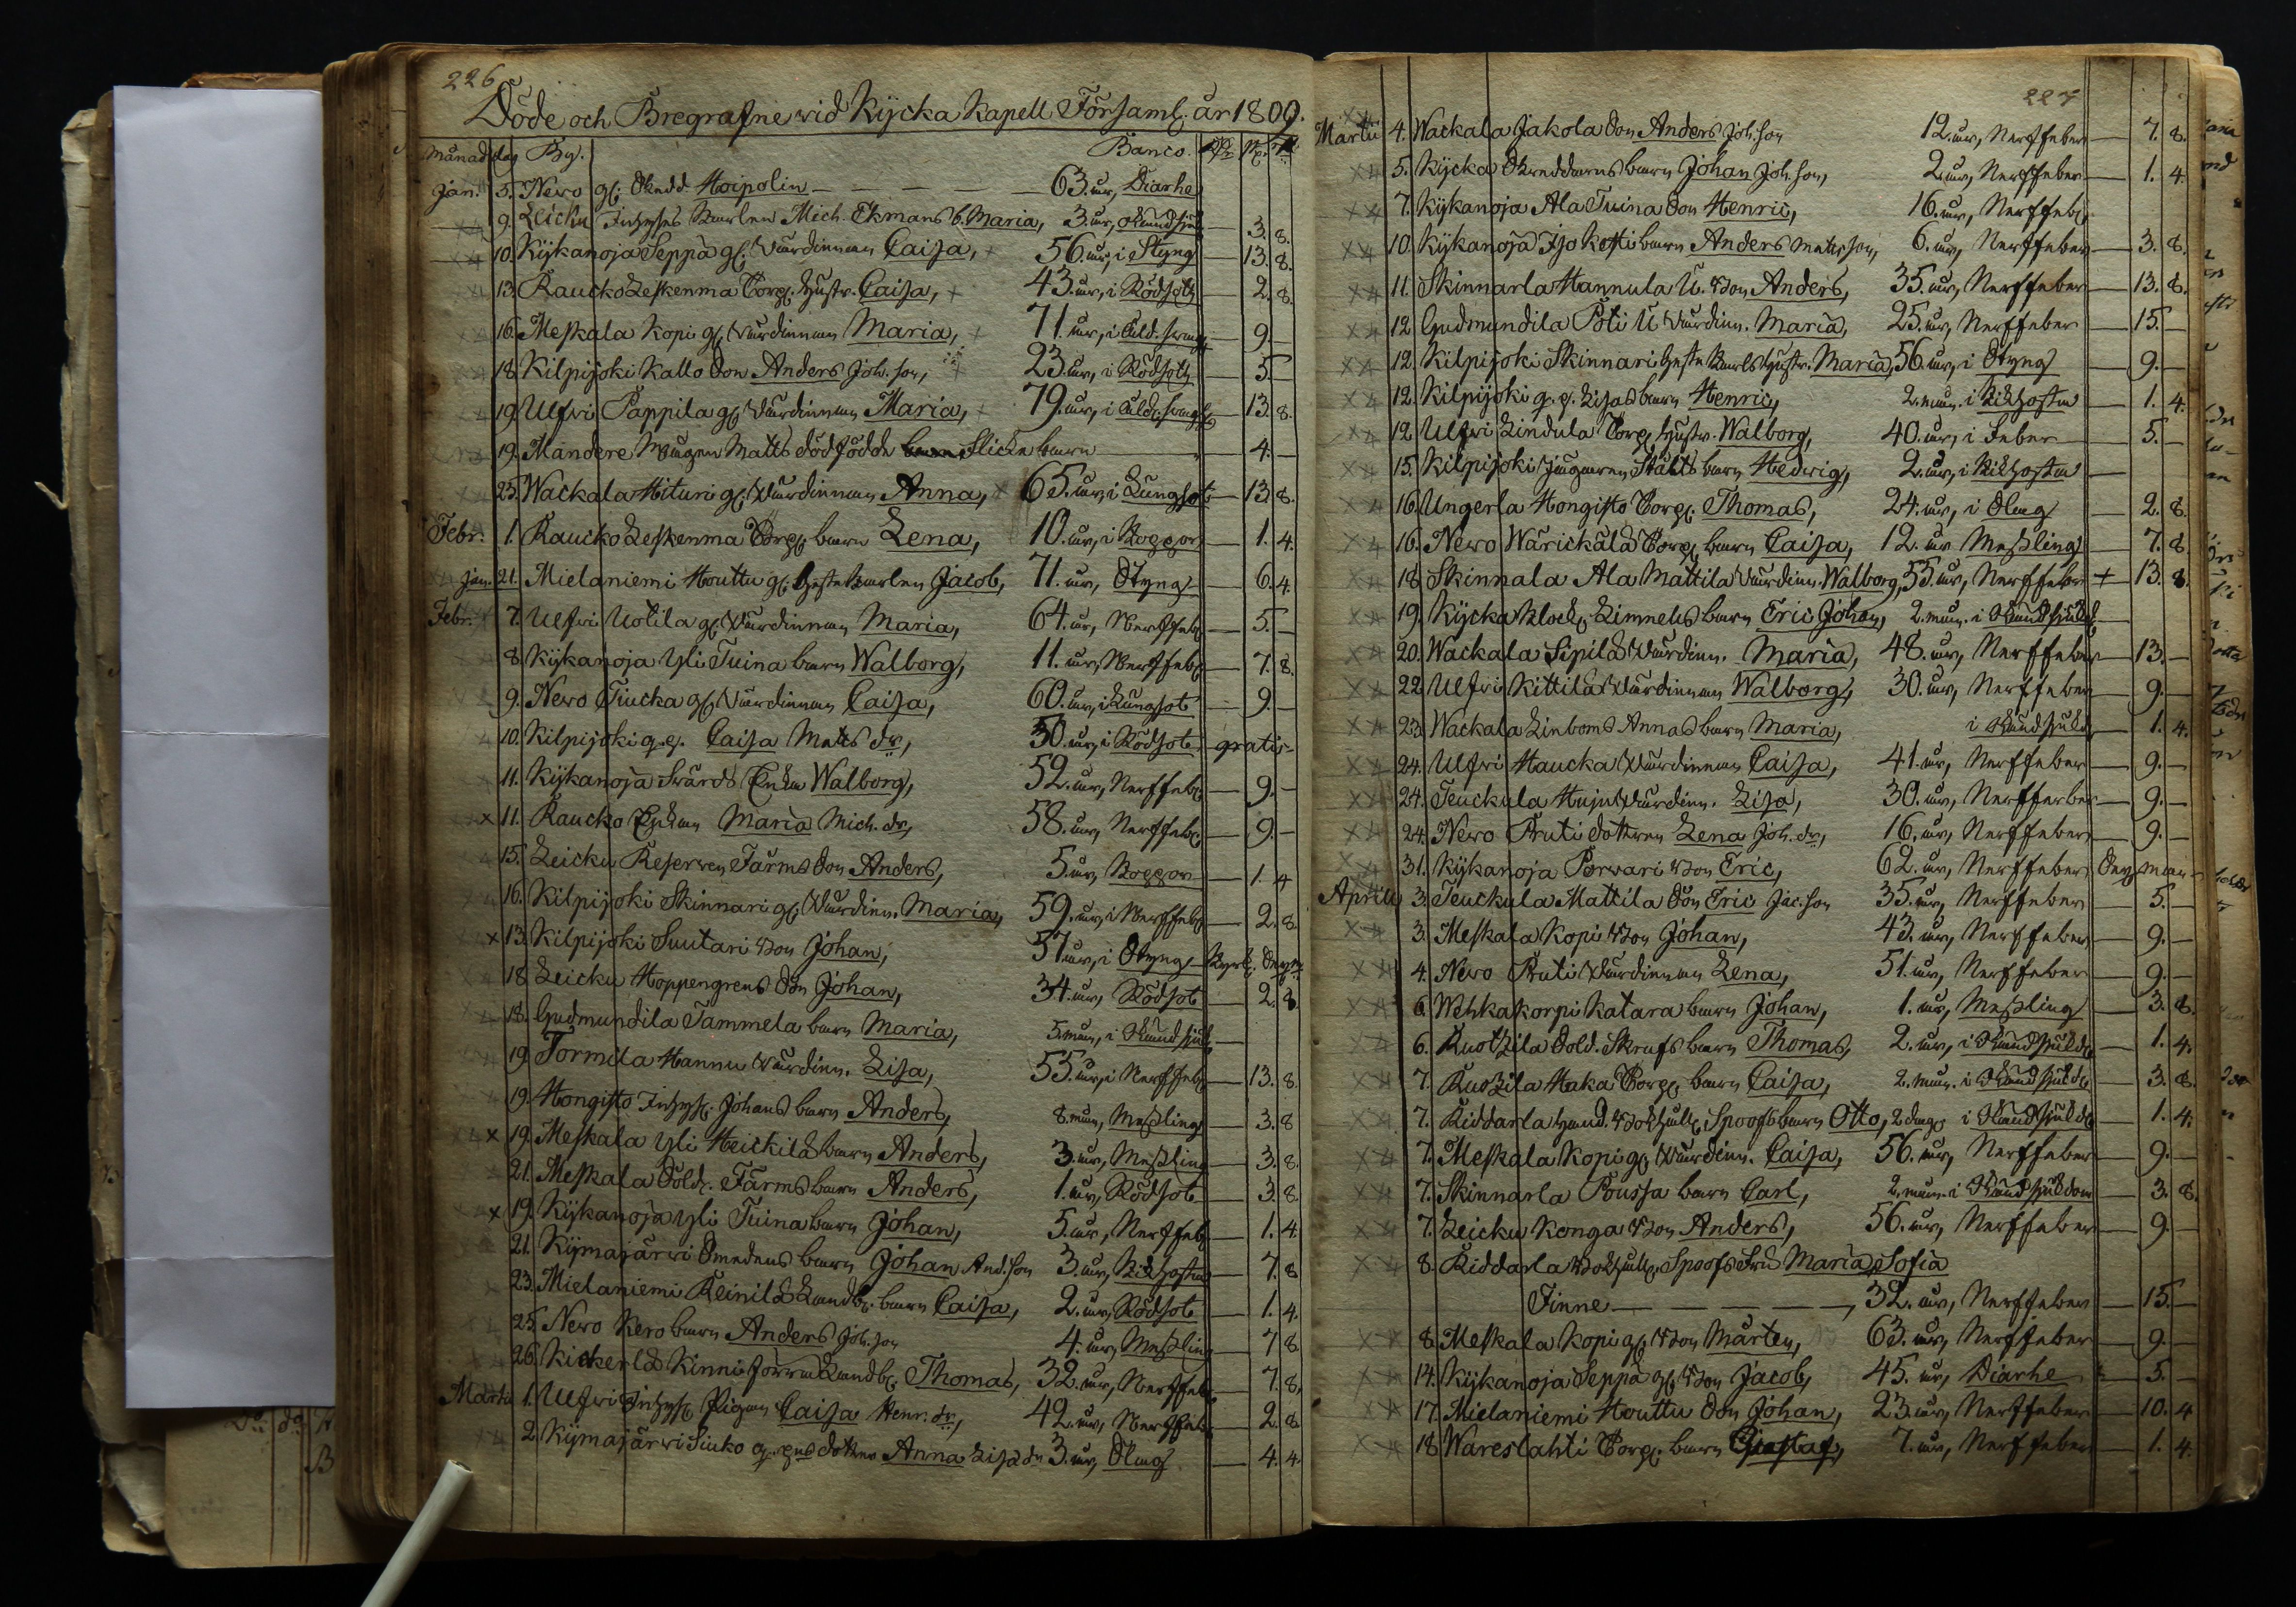 226
Döde och Bregrafne wid Kycka Kapell Församl. år 1809.
Månad dag By. Banco. Rd sk. rs.
Jan. 5. Nero gl. Skredd. Hoipolin — 63. år, Diarhe
9. Leicku Inhyses Karlen Mich. Ekmans b. Maria, 3. år, okänd sjuk — 3. 8.
10. Kykanoja Seppä gl. Wärdinnan Caisa, 56. år, i Styng — 13. 8.
13. Raucko Leskenma Torp. Hustr. Caisa, 43. år, i Rödsot — 2. 8.
16. Meskala Kopi gl. Wärdinnan Maria, 71. år, i Åld. swag — 9. —
18. Kilpijoki Kallo Son Anders Joh. son, 23. år, i Rödsot — 5. —
19. Ulfvi Pappila gl. Wärdinnan Maria, 79. år, i Åld. swagh — 13. 8.
19. Mandere Matts dödfödde Flicke barn — 4. —
25. Wackala Hituri gl. Wärdinnan Anna, 65. år, i Lungsot — 13. 8.
Febr. 1. Raucko Leskenma Torp. barn Lena, 10. år, i Koppor — 1. 4.
Jan. 21. Mielaniemi Houttu gl. Jacob, 71. år, Styng — 6. 4.
Febr. 7. Ulfvi Uotila gl. Wärdinnan Maria, 64. år, Nerffeb. — 5. —
8. Kykanoja Yli Tuina barn Walborg, 11. år, Nerffeb. — 7. 8.
9. Nero Tiucka gl. Wärdinnan Caisa, 60. år, i Lungsot — 9. —
10. Kilpijoki q. p. Caisa Matts dr, 30. år, i Rödsot gratis
11. Kykanoja Swärds Enka Walborg, 52. år, Nerffeb. — 9. —
x 11. Raucko Enkan Maria Mich. dr, 58. år, Nerffeb. — 9. —
15. Leicku Reserven Färms Son Anders, 5. år, Koppor — 1. 4
16. Kilpijoki Skinnari gl. Wärdinn. Maria, 59. år, i Nerffeb. — 2. 8
x 13. Kilpijoki Suutari Wdn Johan, 57 år, i Styng
18. Leicku Hoppengrens Son Johan, 34. år, Rödsot — 2. 8
18. Gudmundila Tammela barn Maria, 5. mån, i Okänd sjuk —
19. Tormila Hannu Wärdinn. Lisa, 55. år, i Nerffeb. — 13. 8.
19. Hongisto Inhys. Johans barn Anders, 8. mån, Messling — 3. 8
x 19. Meskala Yli Heickilä barn Anders, 3. år, Messling — 3. 8.
21. Meskala Sold. Färms barn Anders, 1. år, Rödsot — 3. 8.
x 19. Kykanoja Yli Tuina barn Johan, 5. år, Nerffeb. — 1. 4.
21. Kymajärwi Smedens barn Johan And. son 3. år, Kikhosta — 7. 8
23. Mielaniemi Reinilä Landb. barn Caisa, 2. år, Rödsot — 1. 4.
25. Nero Kero barn Anders Joh. son 4. år, Messling — 7 8
26. Kickerlä Kinni förra Landb. Thomas, 32. år, Nerffeb. — 7. 8.
Martii 1. Ulfvi Inhys. Pigan Caisa Henr. dr, 42. år, Nerffeb. — 2. 8.
2. Kymajärwi Siuko q. pns dotter Anna Lisa dr 3. år, Slag — 4. 4.
227
Martii 4. Wackala Jakola Son Anders Joh. son 12. år, Nerffeber — 7. 8.
5. Kycka Skreddarns barn Johan Joh. son, 2. år, Nerffeber — 1. 4.
7. Kykanoja Ala Tuina Son Henric, 16. år, Nerffeb.
10. Kykanoja Iso Kotti barn Anders Matts son, 6. år, Nerffeber — 3. 8.
11. Skinnarla Hannula U. Wdn Anders, 35. år, Nerffeber — 13. 8.
12. Gudmundila Pöti U Wärdinn. Maria, 25. år, Nerffeber — 15. —
12. Kilpijoki Skinnari Hustr. Maria, 56. år, i Styng — 9. —
12. Kilpijoki q. p. Lisas barn Henric, 2. mån. i Kikhosta — 1. 4.
12. Ulfvi Lindula Torp. Hustr. Walborg, 40. år, i Feber — 5. —
15. Kilpijoki Jägaren Ståhls barn Hedwig, 2. år, i Kikhosta —
16. Ungerla Hongisto Torp. Thomas, 24. år, i Slag — 2. 8.
16. Nero Wärickälä Torp. barn Caisa, 12. år Messling — 7. 8.
18. Skinnala Ala Mattila Wärdinn. Walborg, 55. år, Nerffeber + 13. 8.
19. Kycka Klock. Limnels barn Eric Johan, 2. mån. i Okänd sjukd. —
20. Wackala Sipilä Wärdinn. Maria, 48. år, Nerffeber — 13. —
22. Ulfvi Kittilä Wärdinnan Walborg, 30. år, Nerffeber — 9. —
23. Wackala Linboms Annas barn Maria, i Okänd sjukd. — 1. 4.
24. Ulfvi Haucka Wärdinnan Caisa, 41. år, Nerffeber — 9. —
24. Teuckula Huju Wärdinn. Lisa, 30. år, Nerfferber — 9. —
24. Nero Pruti dottren Lena Joh. dr, 16. år, Nerffeber — 9. —
31. Kykanoja Porwari Wdn Eric, 62. år, Nerffeber
Aprill 3. Teuckula Mattila Son Eric Jac. son 35. år, Nerffeber — 5. —
3. Meskala Kopi Wdn Johan, 43. år, Nerffeber — 9. —
4. Nero Pruti Wärdinnan Lena, 51. år, Nerffeber — 9. —
6. Wehkakorpi Katara barn Johan, 1. år, Messling — 3. 8.
6. Ruotzila Sold. Skrufs barn Thomas, 2. år, i Okänd sjukd. — 1. 4.
7. Ruotzila Haka Torp. barn Caisa, 2. mån. i Okänd sjukd. — 3. 8.
7. Riddarla Spoofs barn Otto, 2 dagr i Okänd sjukd. — 1. 4.
7. Meskala Kopi gl. Wärdinn. Caisa, 56. år, Nerffeber — 9. —
7. Skinnarla Poussa barn Carl, 2. mån. i Okänd sjukdom — 3. 8.
7. Leicku Konga Wdn Anders, 56. år, Nerffeber — 9. —
8. Riddarla Spoofs Fru Maria Sofia
Finne — 32. år, Nerffeber — 15. —
8. Meskala Kopi gl. Wdn Mårten, 63. år, Nerffeber — 9. —
14. Kykanoja Seppä gl. Wdn Jacob, 45. år, Diarhe — 5. —
17. Mielaniemi Houttu Son Johan, 23. år, Nerffeber — 10. 4
18. Wareslahti Torp. barn Gustaf, 7. år, Nerffeber — 1. 4.